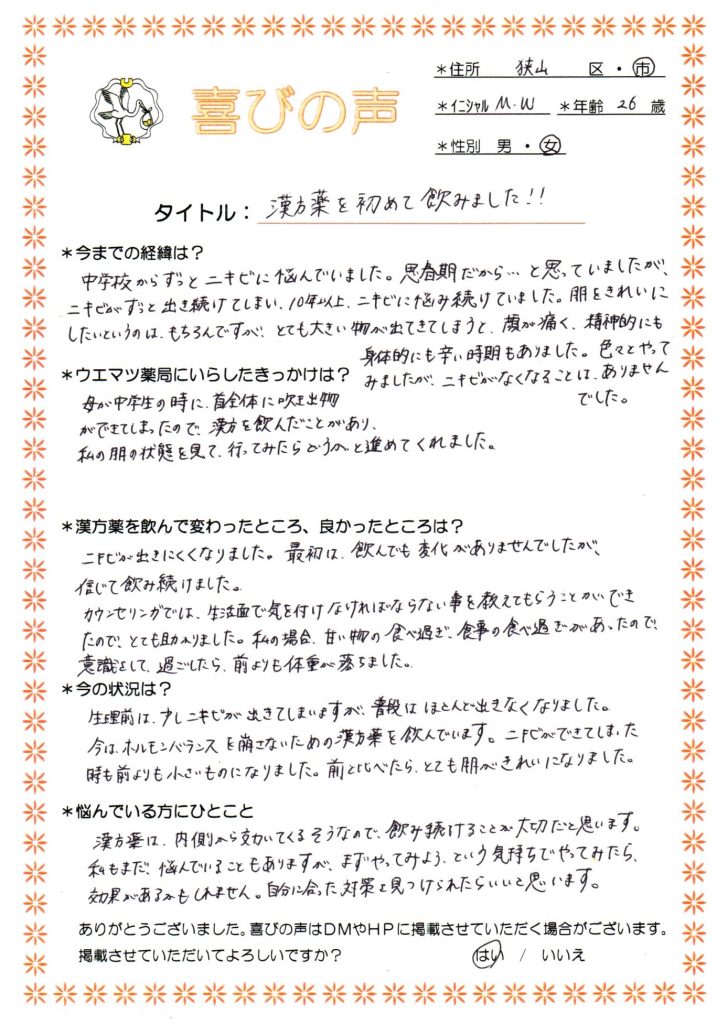 喜びの声
*住所 狭山 区・市
*イニシャル M.W *年齢 26 歳
*性別 男・女
タイトル：漢方薬を初めて飲みました!!
*今までの経緯は？
中学校からずっとニキビに悩んでいました。思春期だから…と思っていましたが、
ニキビがずっと出き続けてしまい、10年以上、ニキビに悩み続けていました。肌をきれいに
したいというのは、もちろんですが、とても大きい物が出てきてしまうと、顔が痛く、精神的にも
身体的にも辛い時期もありました。色々とやって
みましたが、ニキビがなくなることは、ありません
でした。
*ウエマツ薬局にいらしたきっかけは？
母が中学生の時に、首全体に吹き出物
ができてしまったので、漢方を飲んだことがあり、
私の肌の状態を見て、行ってみたらどうかと進めてくれました。
*漢方薬を飲んで変わったところ、良かったところは？
ニキビが出きにくくなりました。最初は、飲んでも変化がありませんでしたが、
信じて飲み続けました。
カウンセリングでは、生活面で気を付けなければならない事を教えてもらうことができ
たので、とても助かりました。私の場合、甘い物の食べ過ぎ、食事の食べ過ぎがあったので、
意識をして、過ごしたら、前よりも体重が落ちました。
*今の状況は？
生理前は、少しニキビが出きてしまいますが、普段はほとんど出きなくなりました。
今は、ホルモンバランスを崩さないための漢方薬を飲んでいます。ニキビができてしまった
時も前よりも小さいものになりました。前と比べたら、とても肌がきれいになりました。
*悩んでいる方にひとこと
漢方薬は、内側から効いてくるそうなので、飲み続けることが大切だと思います。
私もまだ、悩んでいることもありますが、まずやってみよう、という気持ちでやってみたら、
効果があるかもしれません。自分に合った対策を見つけられたらいいと思います。
ありがとうございました。喜びの声はDMやHPに掲載させていただく場合がございます。
掲載させていただいてよろしいですか？ はい / いいえ